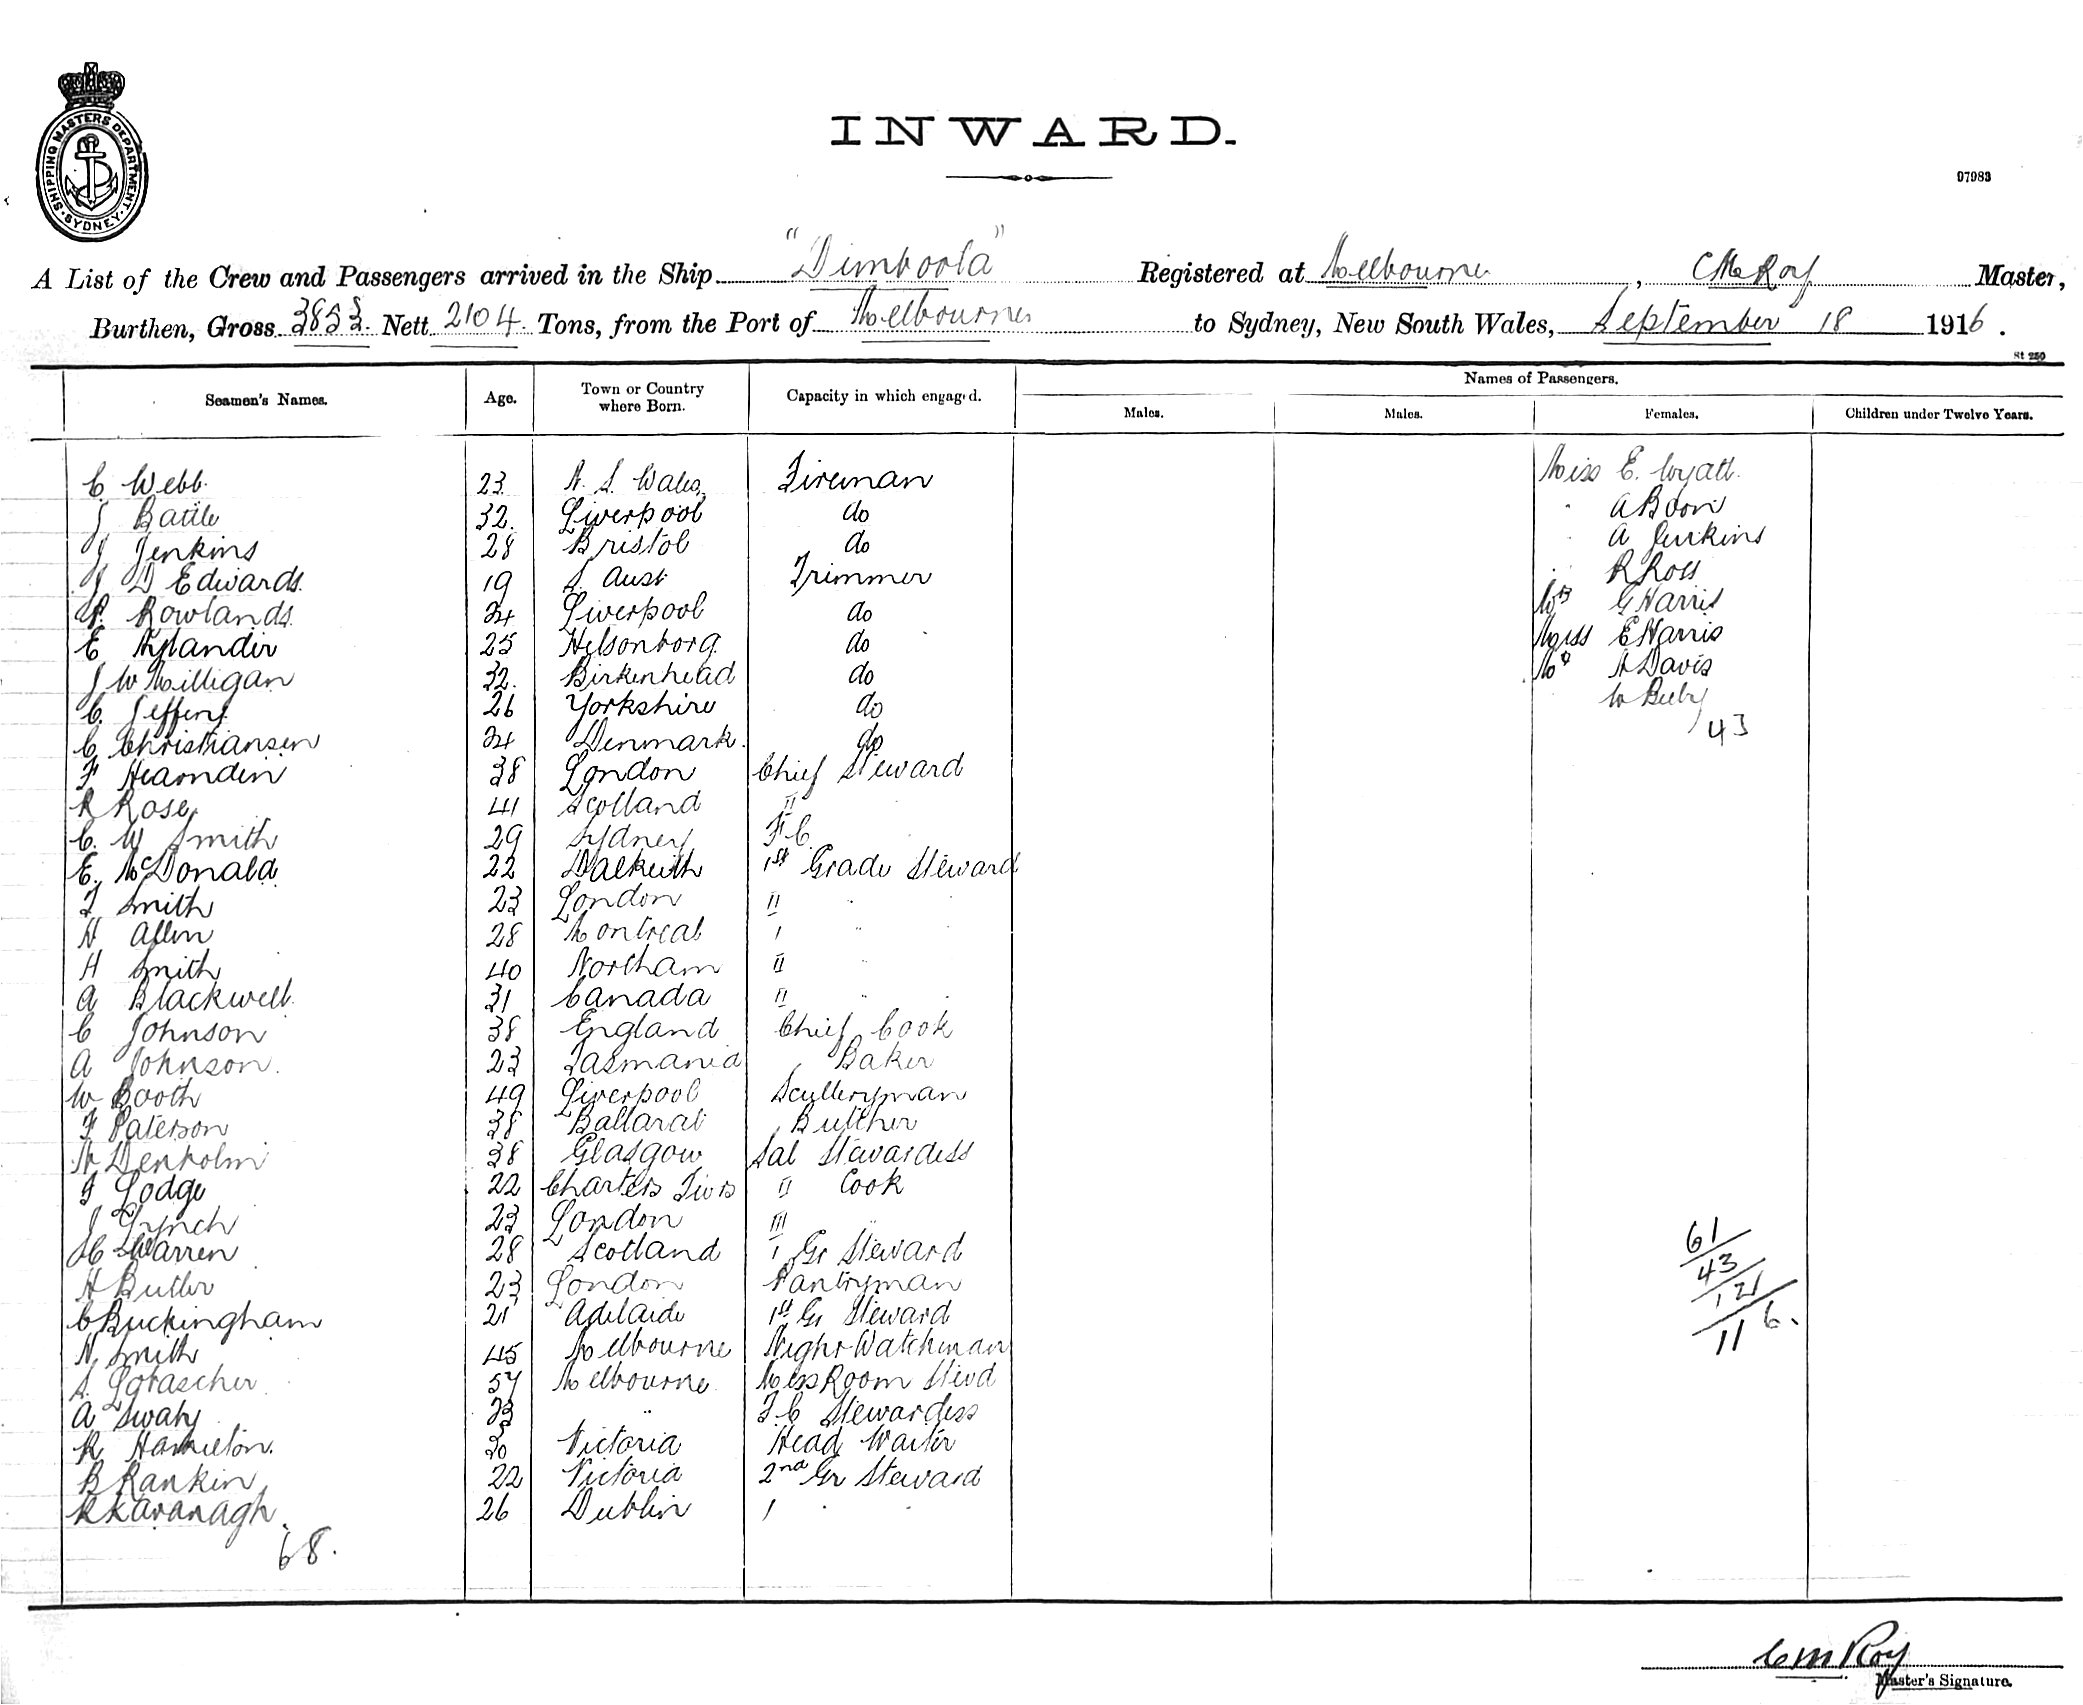 SHIPPING MASTERS DEPARTMENT. SYDNEY
INWARD.
97983
A List of the Crew and Passengers arrived in the Ship "Dimboola" Registered at Melbourne, C M Roy Master,
Burthen, Gross 3853 Nett 2104 Tons, from the Port of Melbourne to Sydney, New South Wales, September 18 1916.
St 250
Seamen's Names. Age. Town or Country where Born. Capacity in which engaged. Names of Passengers.
Males. Males. Females. Children under Twelve Years.
C. Webb 23 N. S. Wales Fireman Miss E. Wyatt.
J Battle 32. Liverpool do " A Boon
J Jenkins 28 Bristol do " A Jenkins
J D Edwards 19 S. Aust Trimmer " R Ross
R. Rowlands 34 Liverpool do Mrs G Harris
E Nylander 25 Helsonborg do Miss E Harris
J W Milligan 32. Birkenhead do A Davis
C. Jeffery 26 Yorkshire do W Beeby
C Christiansen 34 Denmark. do 43
F Hearnden 38 London Chief Steward
R Rose 41 Scotland II
C. W Smith 29 Sydney F C
E. McDonald 22 Dalkeith 1st Grade Steward
T Smith 23 London II "
H Allen 28 Montreal 1 "
H Smith 40 Northam II "
A Blackwell 31 Canada II "
C Johnson 38 England Chief Cook
A Johnson. 23 Tasmania Baker
W Booth 49 Liverpool Sculleryman
F Paterson 38 Ballarat Butcher
N Denholm 38 Glasgow Sal Stewardess
F Lodge 22 Charters Twrs II Cook
J Lynch 23 London III "
Warren 28 Scotland 1 Gr Steward
H Butler 23 London Pantryman
C Buckingham 21 Adelaide 1st Gr Steward
N Smith 45 Melbourne Night Watchman
S. 57 Melbourne Mess Room Stewd
A 33 " F C Stewardess
R Hamilton. 30 Victoria Head Waiter
B Rankin 22 Victoria 2nd Gr Steward
R Kavanagh. 26 Dublin 1 "
68.
61
43
12
11 6.
C M Roy
Master's Signature.